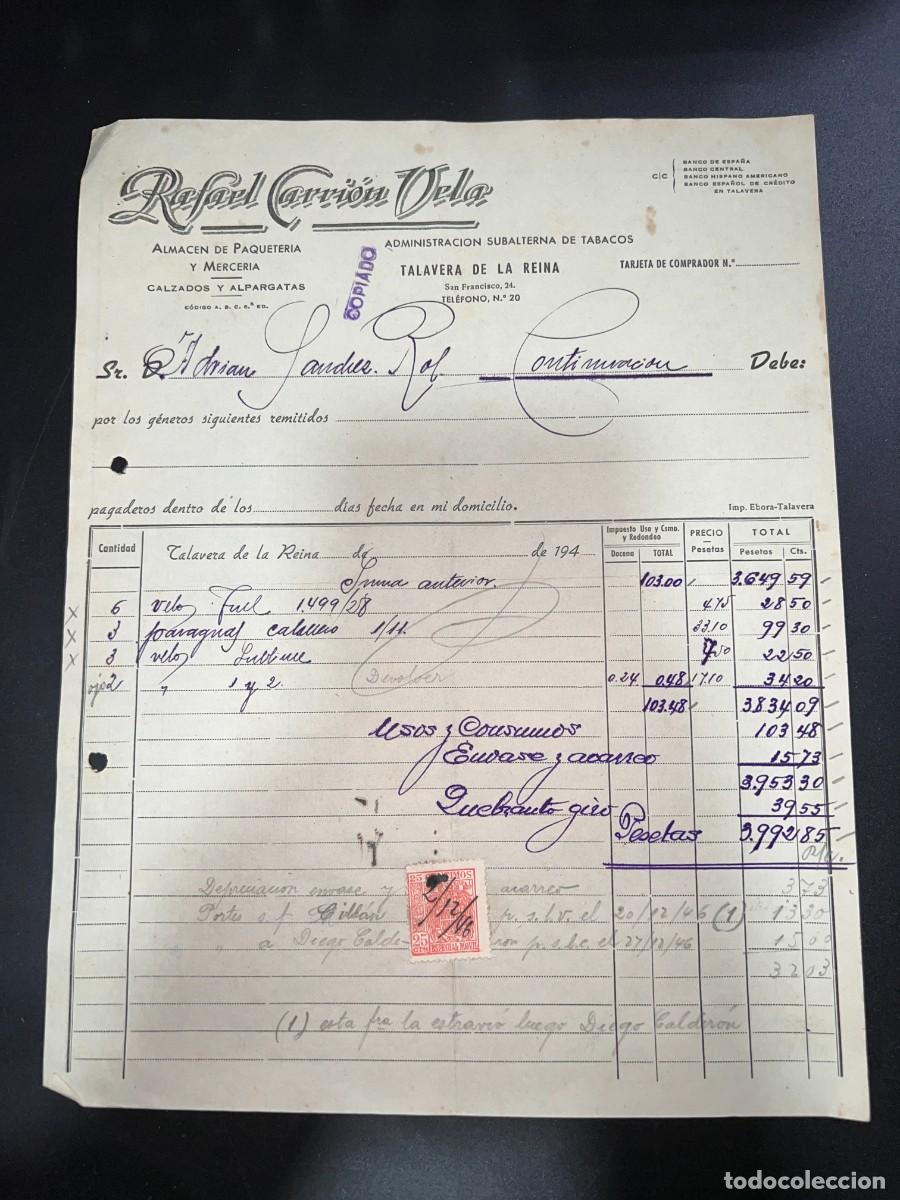 Rafael Carrión Vela
C/C BANCO DE ESPAÑA
BANCO CENTRAL
BANCO HISPANO AMERICANO
BANCO ESPAÑOL DE CRÉDITO
EN TALAVERA
ALMACEN DE PAQUETERIA
Y MERCERIA
CALZADOS Y ALPARGATAS
CÓDIGO A. B. C. 6.ª ED.
COPIADO
ADMINISTRACION SUBALTERNA DE TABACOS
TALAVERA DE LA REINA
San Francisco, 24.
TELÉFONO, N.º 20
TARJETA DE COMPRADOR N.º
Sr. D. Adrian Sanchez Rof Continuacion Debe:
por los géneros siguientes remitidos
pagaderos dentro de los días fecha en mi domicilio.
Imp. Ebora-Talavera
Cantidad Talavera de la Reina de de 194 Impuesto Uso y Csmo. y Redondeo Docena TOTAL PRECIO Pesetas TOTAL Pesetas Cts.
Suma anterior. 103.00 3.649 59
x 6 velos Tul 1.499/28 4.75 28 50
x 3 paraguas caballero 1/11. 33.10 99 30
x 3 velos Sublime 7.50 22 50
ojo 2 " 1 y 2. Devolver 0.24 0.48 17.10 34 20
103.48 3.834 09
Usos y Consumos 103 48
Envase y acarreo 15 73
3.953 30
Quebranto giro 39 55
Pesetas 3.992 85
Depreciacion envase y acarreo 3 73
Portes s.f. Cillán p. s.b.v. el 20/12/46 (1) 13 30
" a Diego Calderón p. s.b.c. el 27/12/46 15 00
32 03
25 CENTIMOS
2/12/46
25 CTMS
ESPECIAL MOVIL
(1) esta fra la estravió luego Diego Calderón
todocoleccion